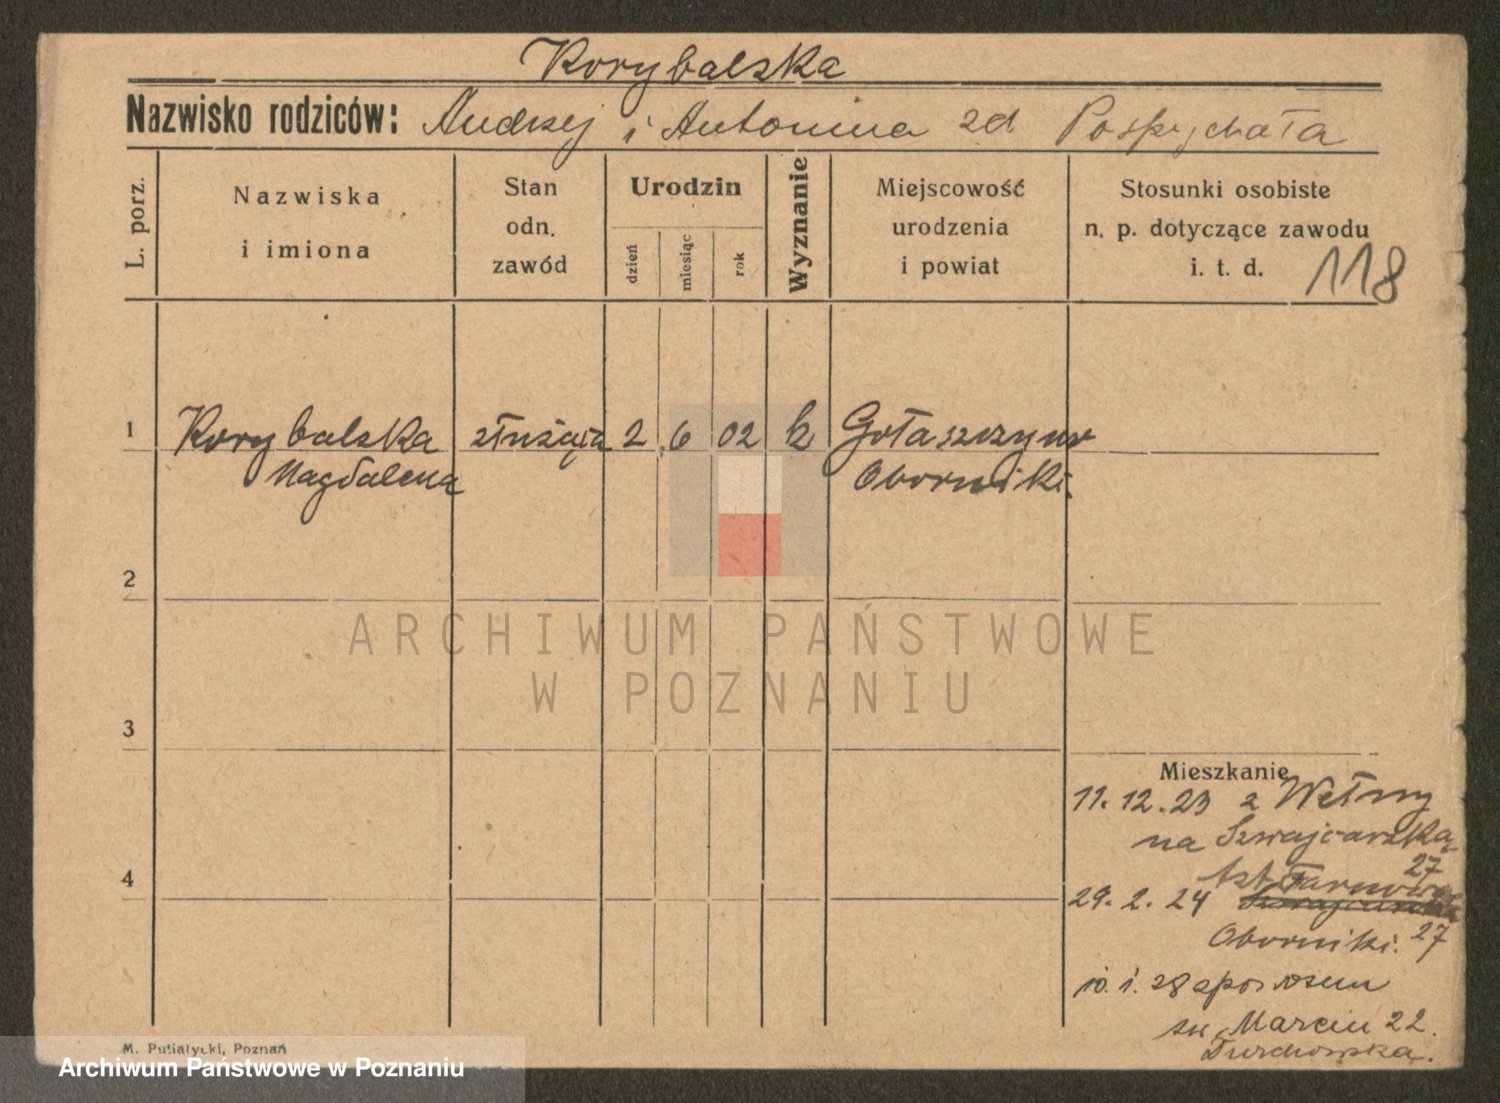 Korybalska
Nazwisko rodziców: Andrzej i Antonina zd Pospychała
L. porz.
Nazwiska
i imiona
Stan
odn.
zawód
Urodzin
dzień
miesiąc
rok
Wyznanie
Miejscowość
urodzenia
i powiat
Stosunki osobiste
n. p. dotyczące zawodu
i. t. d.
118
1 Korybalska służąca 2 6 02 k Gołaszczyno
Magdalena Oborniki.
2
ARCHIWUM PAŃSTWOWE
W POZNANIU
3
Mieszkanie
11. 12. 23 z Wełny
na Szwajcarską
27
4
29. 2. 24
Oborniki. 27
10. 1. 28
św. Marcin 22.
M. Putiatycki, Poznań
Archiwum Państwowe w Poznaniu